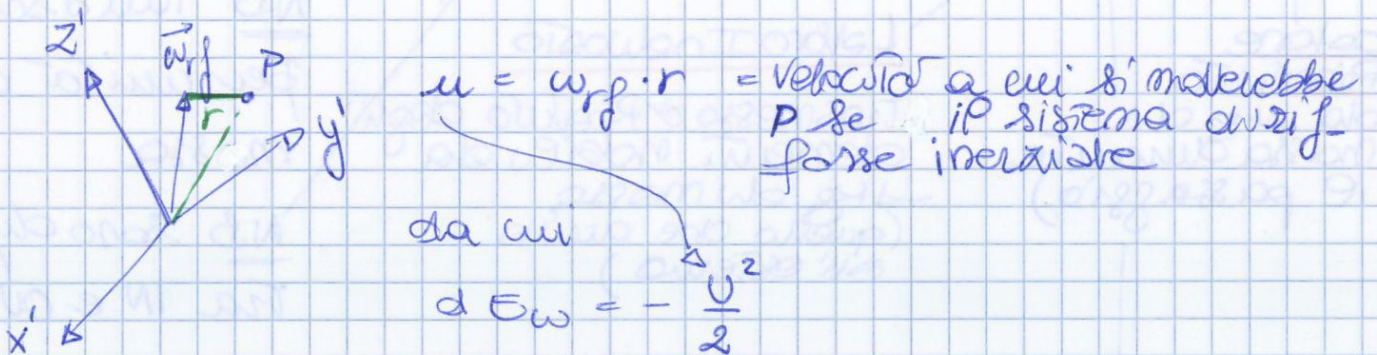 z'
ω⃗rf
P
r
y'
x'
u = ωrf · r = velocità a cui si moverebbe
P se il sistema di rif-
fosse inerziale
da cui
d Eω = - U²/2